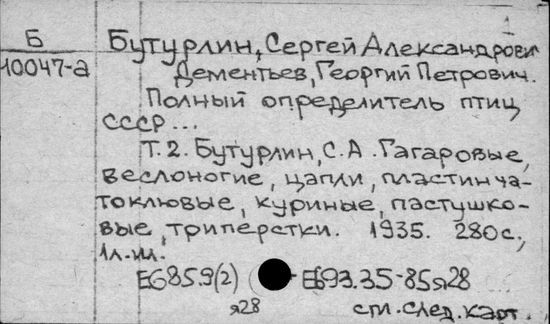 1
Б
10047-а
Бутурлин, Сергей Александрович
Дементьев, Георгий Петрович.
Полный определитель птиц
СССР ...
Т.2. Бутурлин, С.А. Гагаровые,
веслоногие, цапли, пластинча-
токлювые, куриные, пастушко-
вые, триперстки. 1935. 280с.,
1л.ил.
Е685.9(2) - Е693.35-85я28
я28
см.след.карт.